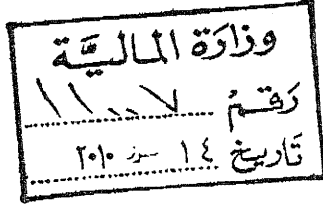 وزارَة الماليَّة
رَقمْ ١١٠٠٧
تَاريخ ١٤ تموز ٢٠١٠